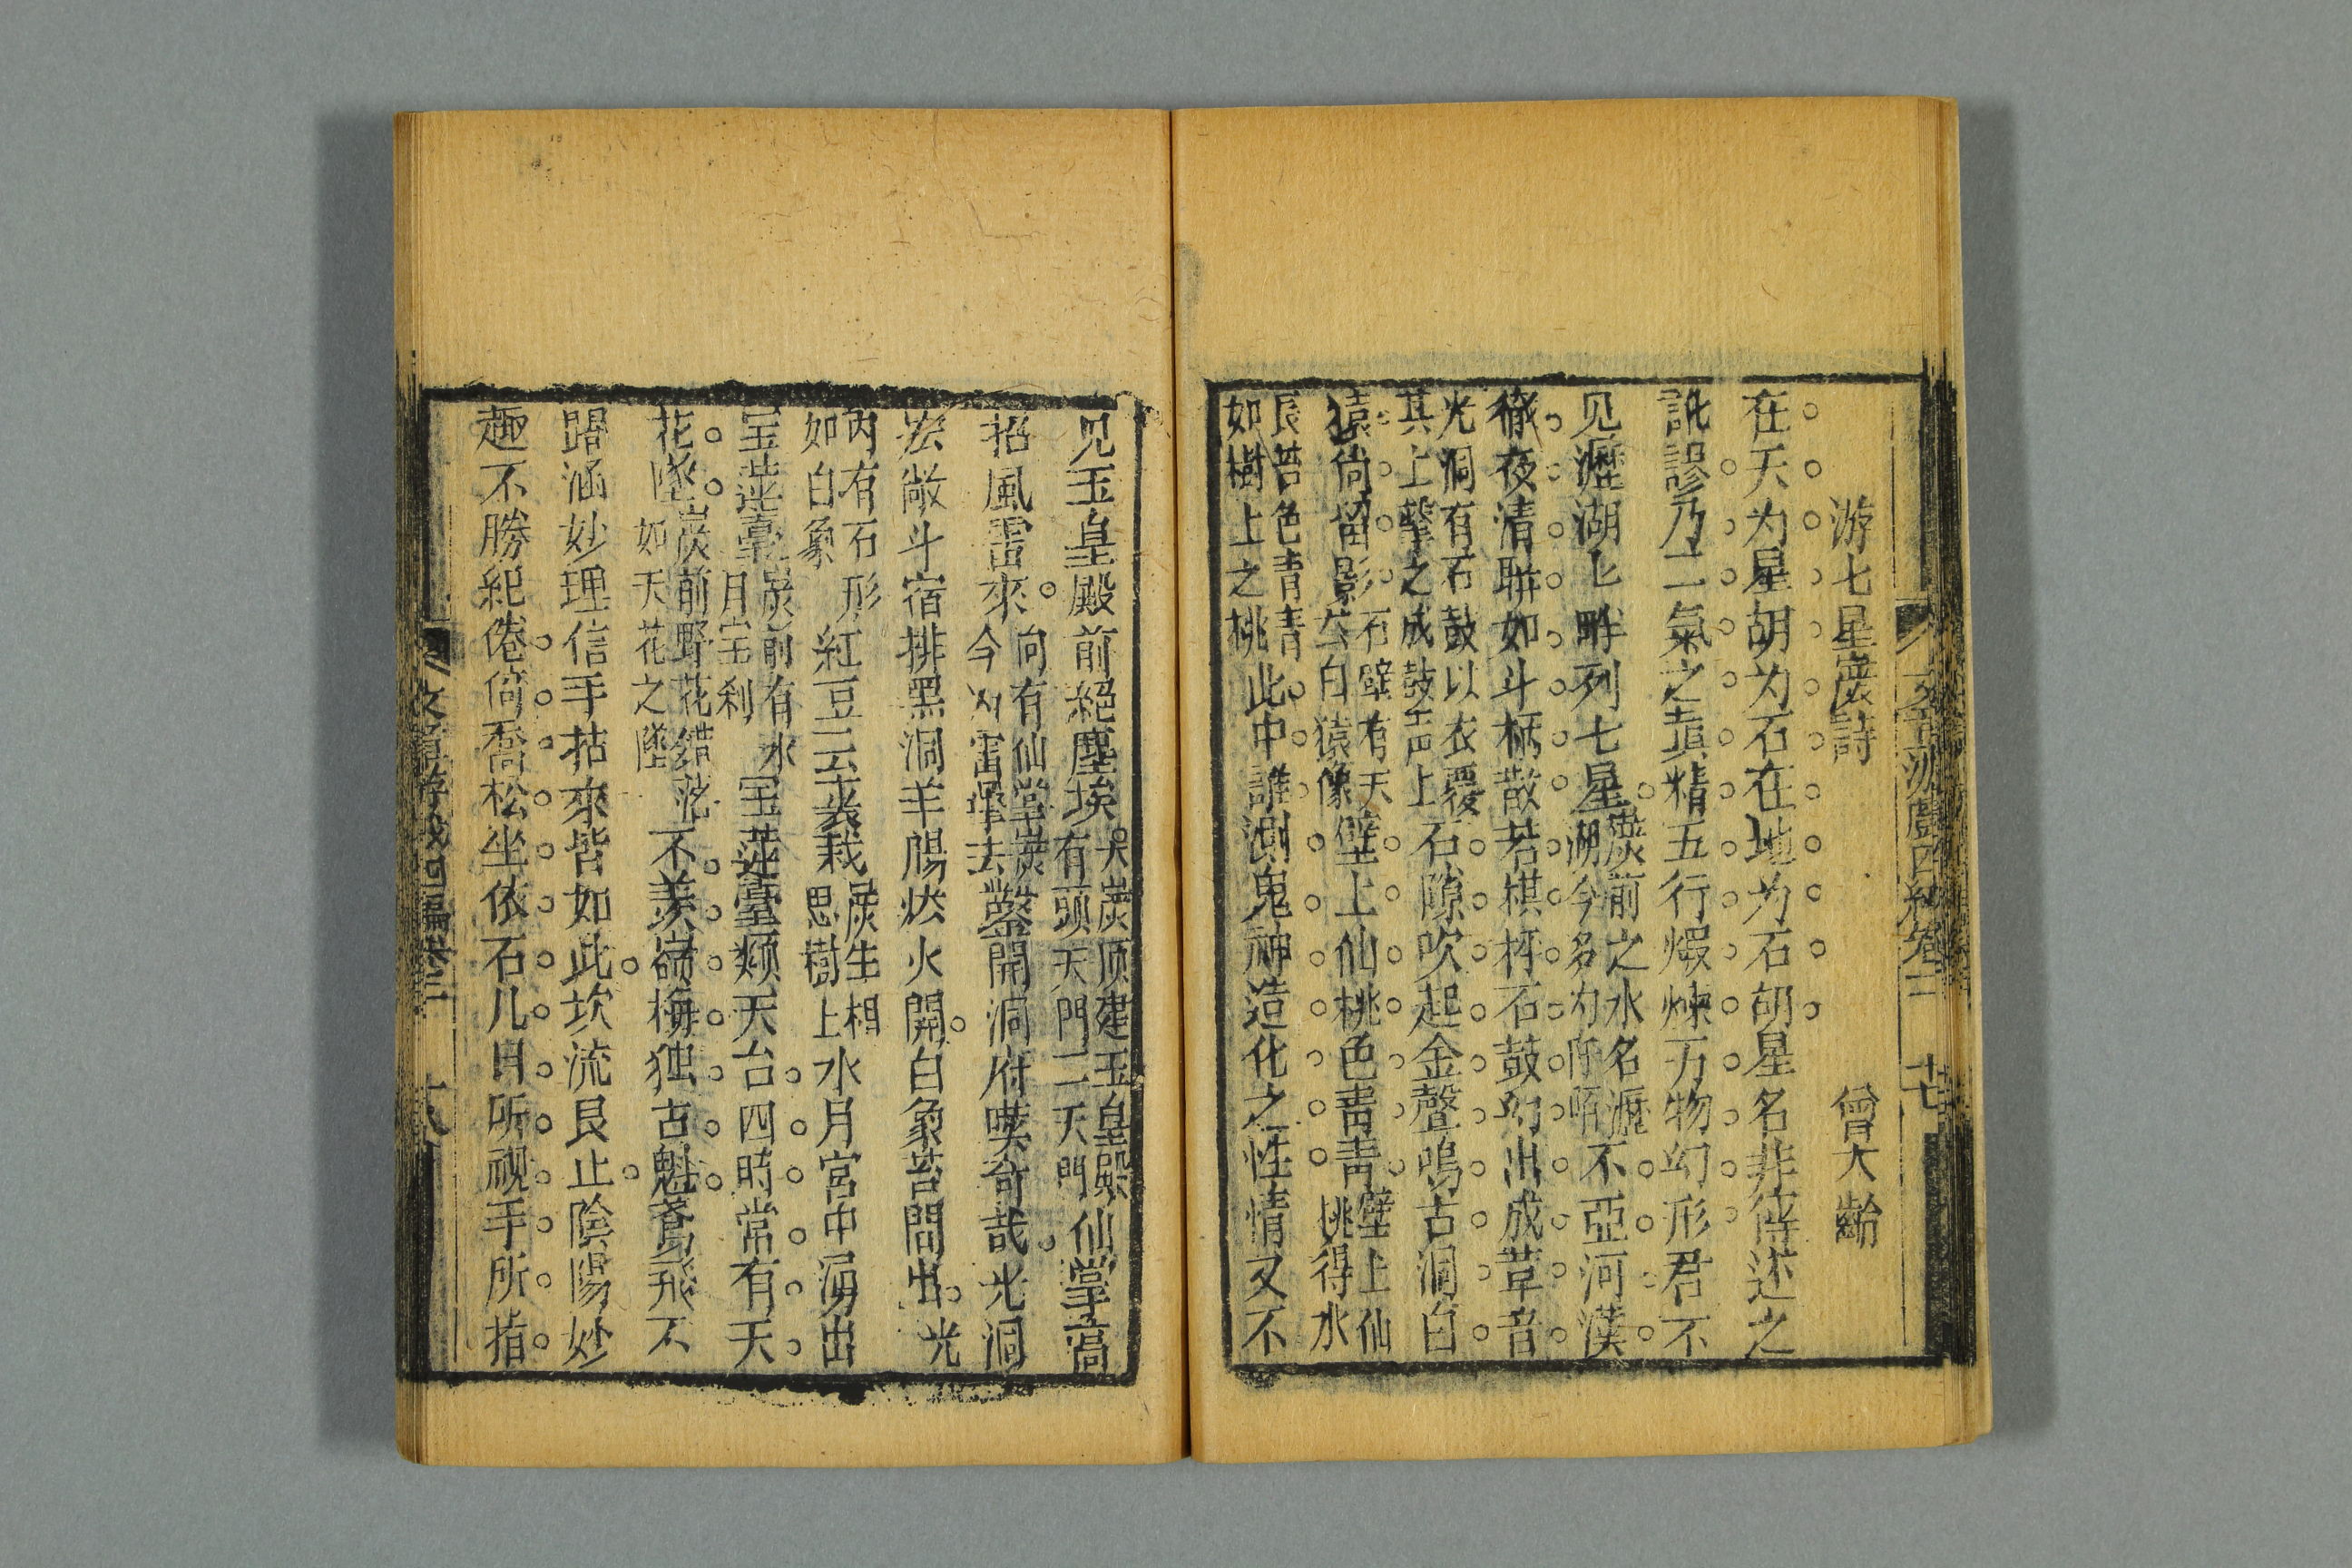 游七星巖詩 曾大齡
在天为星胡为石在地为石胡星名非待述之
訛謬乃二氣之真精五行煅煉万物幻形君不
见瀝湖七畔列七星巖前之水名瀝湖今多为阡陌不亞河漢
徹夜清聯如斗柄散若棋枰石鼓幻出成葦音
光洞有石鼓以衣覆其上擊之成鼓声上石隙吹起金聲鳴古洞白
猿尚留影石壁有天然白猿像壁上仙桃色青青壁上仙桃得水
長苔色青青如樹上之桃此中誰測鬼神造化之性情又不
见玉皇殿前絕塵埃天巖顶建玉皇殿有頭天門二天門仙掌高
招風雷來向有仙掌巖今为雷擊去鑿開洞府嘆奇哉光洞
宏敞斗宿排黑洞羊腸烘火開白象苔間出光
內有石形如白象紅豆云裳栽巖生相思樹上水月宮中湧出
宝莲臺巖前有水月宝刹宝莲臺類天台四時常有天
花墜巖前野花錯落如天花之墜不羨嶺梅独古魁鴛飛不
踏涵妙理信手拈來皆如此坎流艮止陰陽妙
趣不勝紀倦倚喬松坐依石几目所视手所指
十八